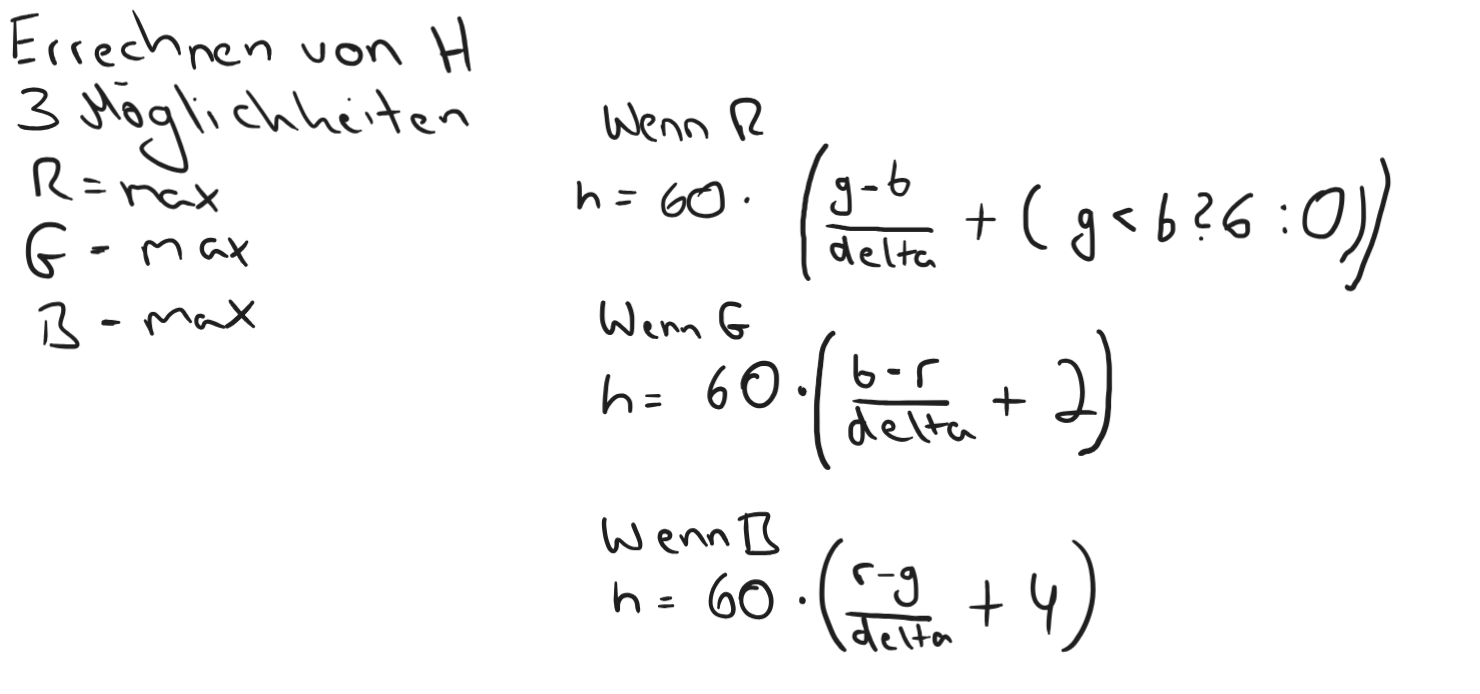 Errechnen von H
3 Möglichkeiten
R = max
G - max
B - max
Wenn R
h = 60 · (g-b/delta + (g < b ? 6 : 0))
Wenn G
h = 60 · (b-r/delta + 2)
Wenn B
h = 60 · (r-g/delta + 4)